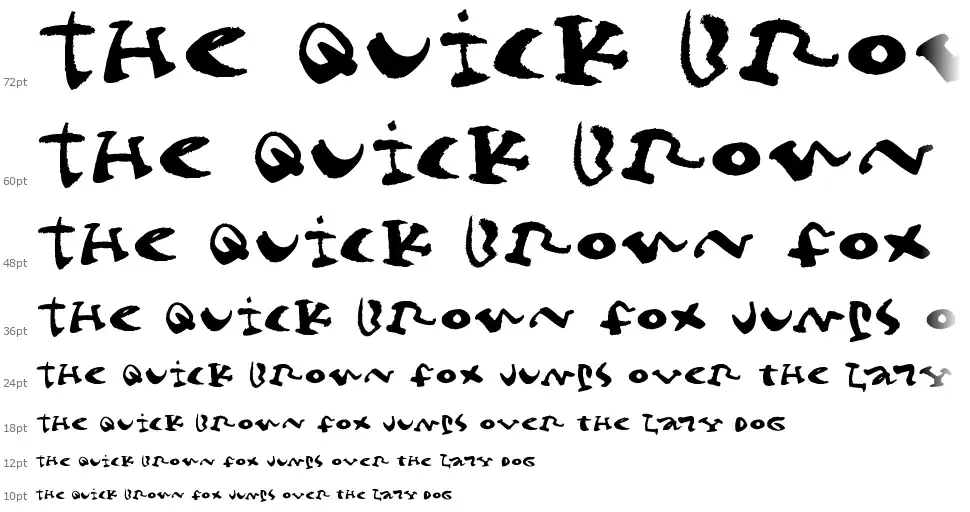 72pt THE QUICK BROW
60pt THE QUICK BROWN
48pt THE QUICK BROWN FOX
36pt THE QUICK BROWN FOX JUMPS O
24pt THE QUICK BROWN FOX JUMPS OVER THE LAZY
18pt THE QUICK BROWN FOX JUMPS OVER THE LAZY DOG
12pt THE QUICK BROWN FOX JUMPS OVER THE LAZY DOG
10pt THE QUICK BROWN FOX JUMPS OVER THE LAZY DOG